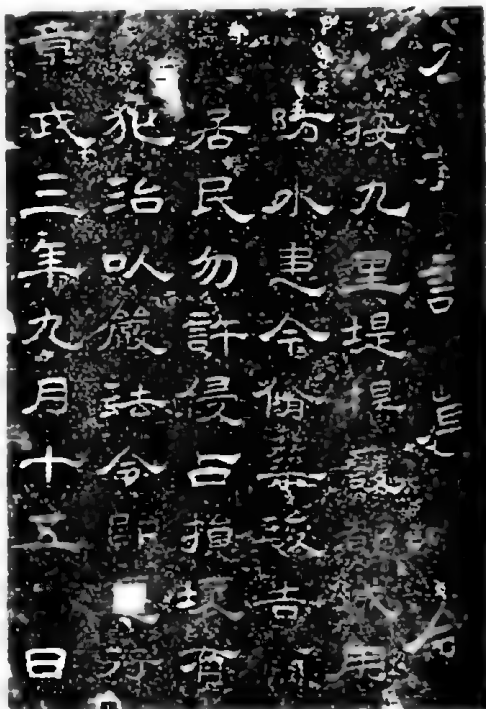 按九里堤捍護都城用
防水患今修築竣告爾
居民勿許侵占損壞有
犯治以嚴法令即行
章武三年九月十五日